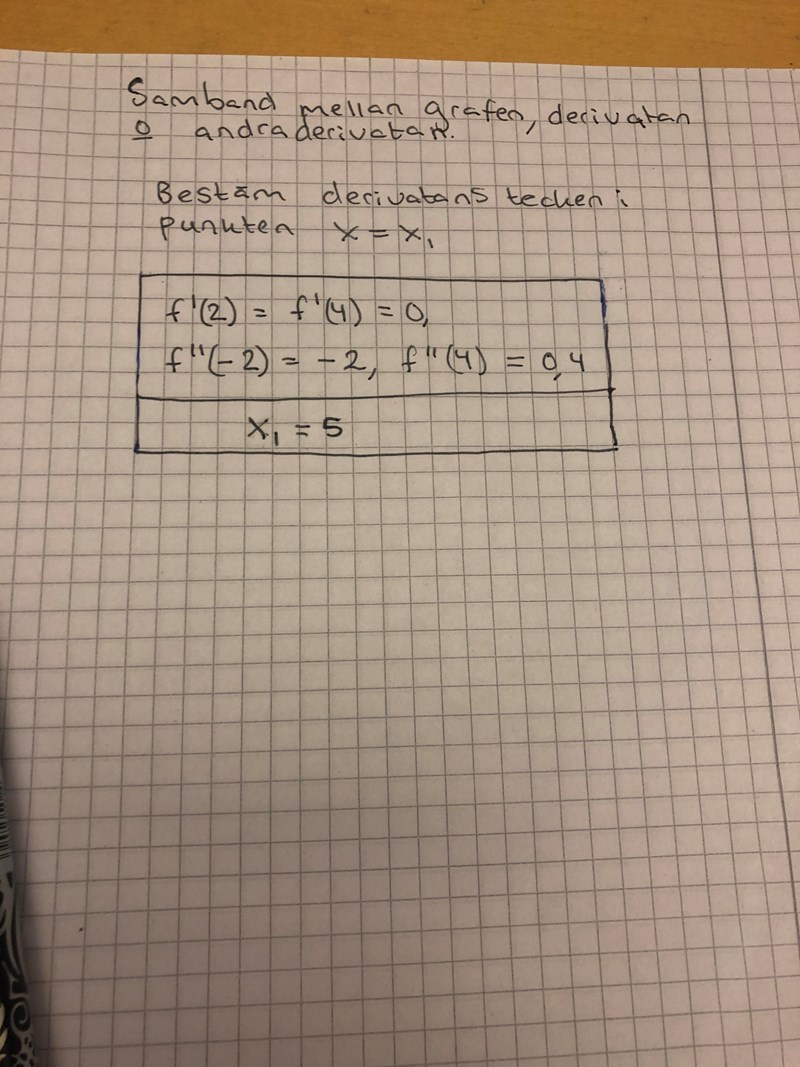 Samband mellan grafen, derivatan
o andraderivatan.
Bestäm derivatans tecken i
punkten x = x₁
f'(2) = f'(4) = 0,
f''(-2) = -2, f''(4) = 0,4
x₁ = 5